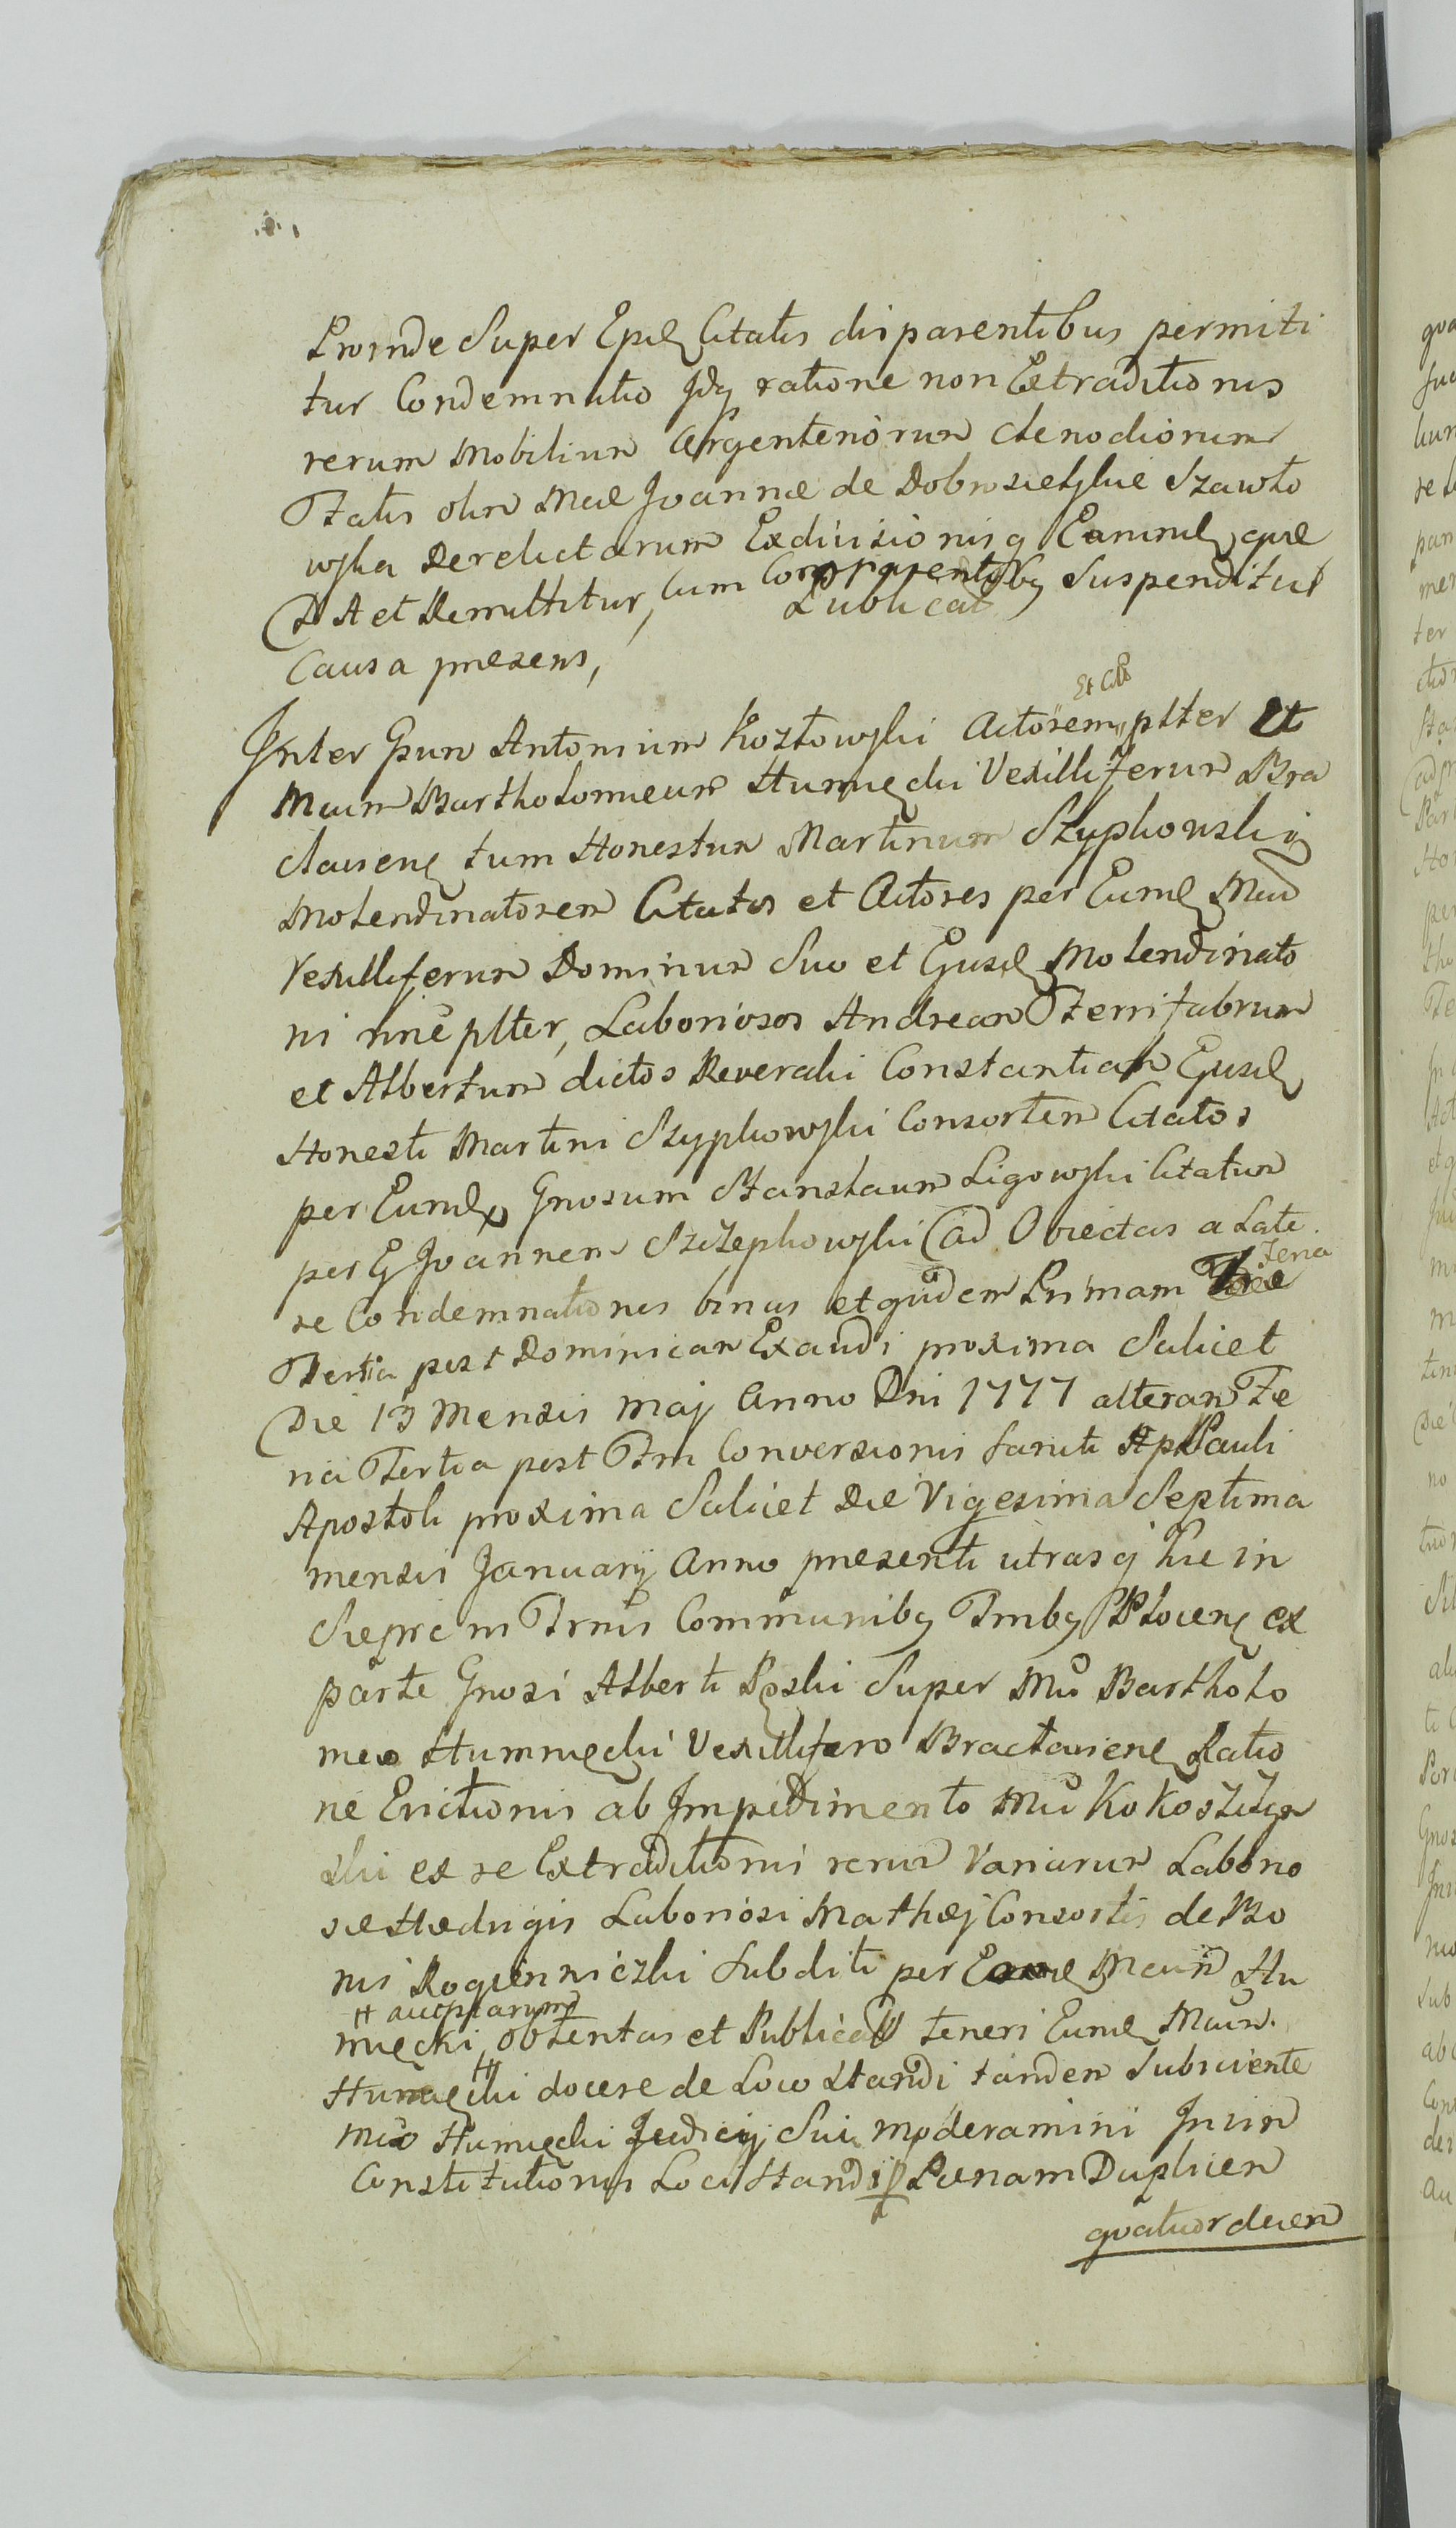 Proinde Super Eꝑd Citatis disparentibus permiti
tur Condemnatio Idq ratione non Extraditionis
rerum Mobilium Argenteriorum Clenodiorum
Fatis olim Mae Joannæ de Dobrosielskie Szawło
wska Derelictarum Exdivisionisq Earund, quæ
DA et Remittitur, cum Comparentibq Suspenditur
Publicat
Causa præsens,
Et Citt
Inter Gsum Antonium Kozłowski Actorem plter Et
Mcum Bartholomeum Humięcki Vexilliferum Bra
claviens tum Honestum Martinum Szyphowski
Molendinatorem Citatos et Actores per Eund Mcum
Vexilliferum Dominum Suo et Ejusd Molendinato
ri nne plter, Laboriosos Andream Ferrifabrum
et Albertum dictos Reveralii Constantiam Ejusd
Honesti Martini Szyphowski Consortem Citatos
per Eund Gnosum Stanislaum Ligowski Citatum
per G Joannem Szczephowski ad Obiectas a Late
re Condemnationes binas et quidem Primam
Feria
Tertia post Dominicam Exaudi proxima Scilicet
Die 13 Mensis Maij Anno Dni 1777 alteram Fe
ria Tertia post Fm Conversionis Sancti Pauli
Apostoli proxima Scilicet Die Vigesima Septima
mensis Januarij Anno præsenti utrasq hic in
Sieprc in Trnis Communibq Tmbq Plocens ex
parte Gnosi Alberti Ręski Super Mco Bartholo
meo Humnięcki Vexillifero Braclaviens Ratio
ne Evictionis ab Impedimento Mci Kokoszczyn
ski ex re Extraditionis rerum Variarum Laborio
sæ Hedvigis Laboriosi Mathæj Consortis de Bo
nis Rogienniczki Subditi per Eund Mcum Hu
# acceptarum
mięcki, obtentas et Publicat teneri Eund Mcum
#
Humięcki docere de Loco Standi tandem Subiiciente
Mco Humięcki Judicij Sui moderamini Invin
Constitutionis Loci Standi Pœnam Duplicem
qvatuordecem